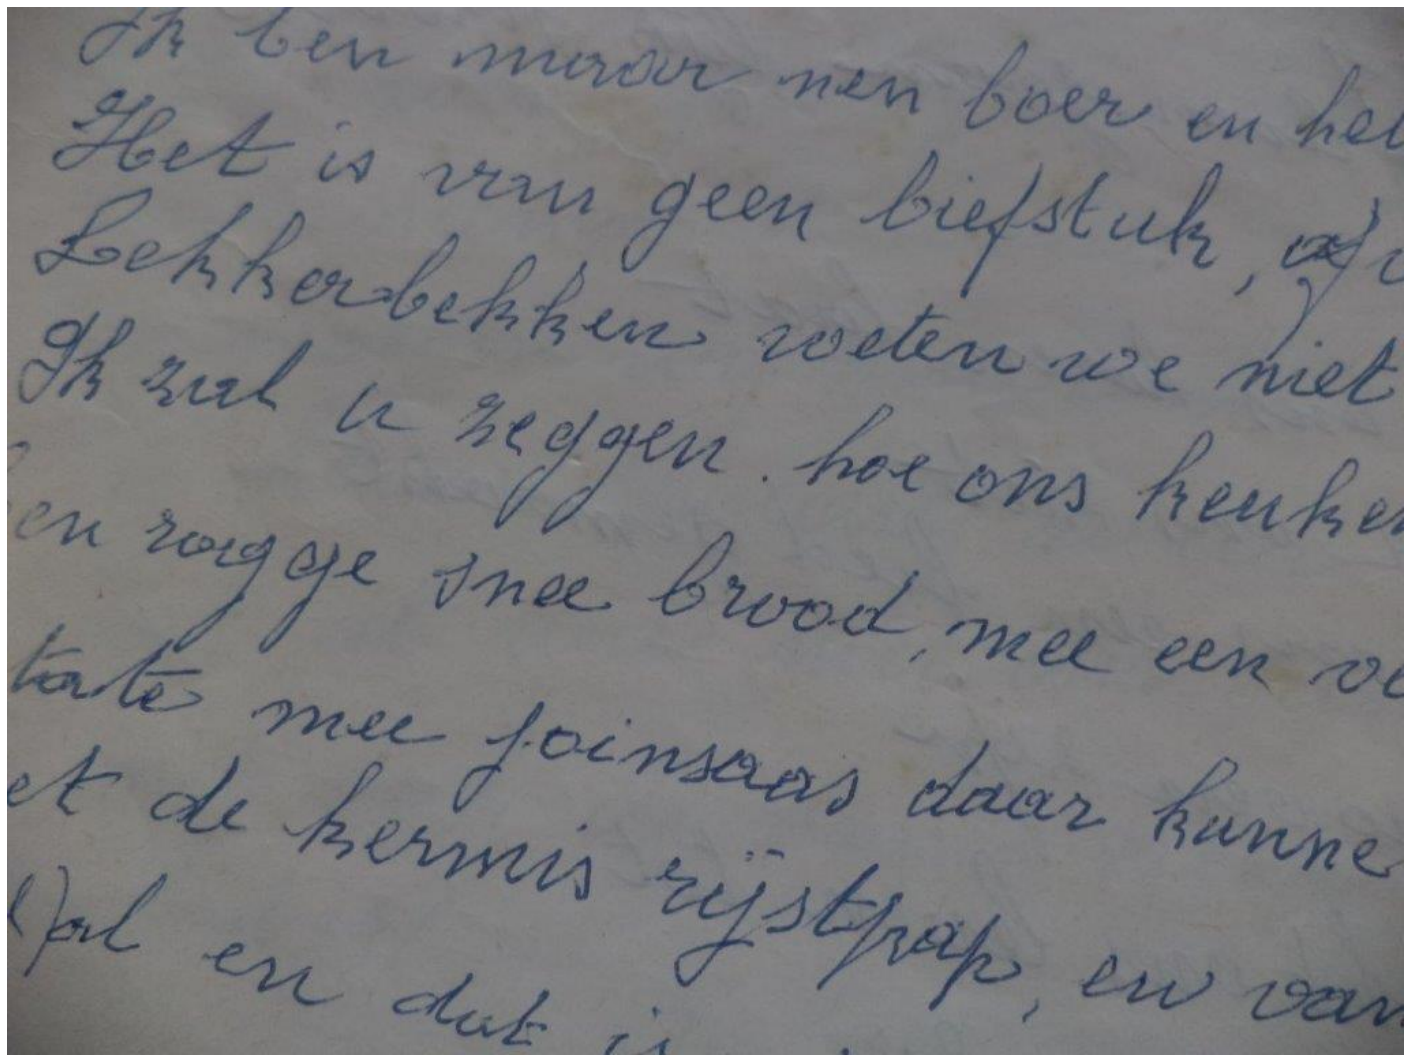 Ik ben maar nen boer en he
Het is van geen biefstuk, of
Lekkerbekken weten we niet
Ik zal u zeggen. hoe ons keuken
en rogge snee brood, mee een
tate mee joinsaas daar kunne
et de kermis rijstpap, en van
en dat is